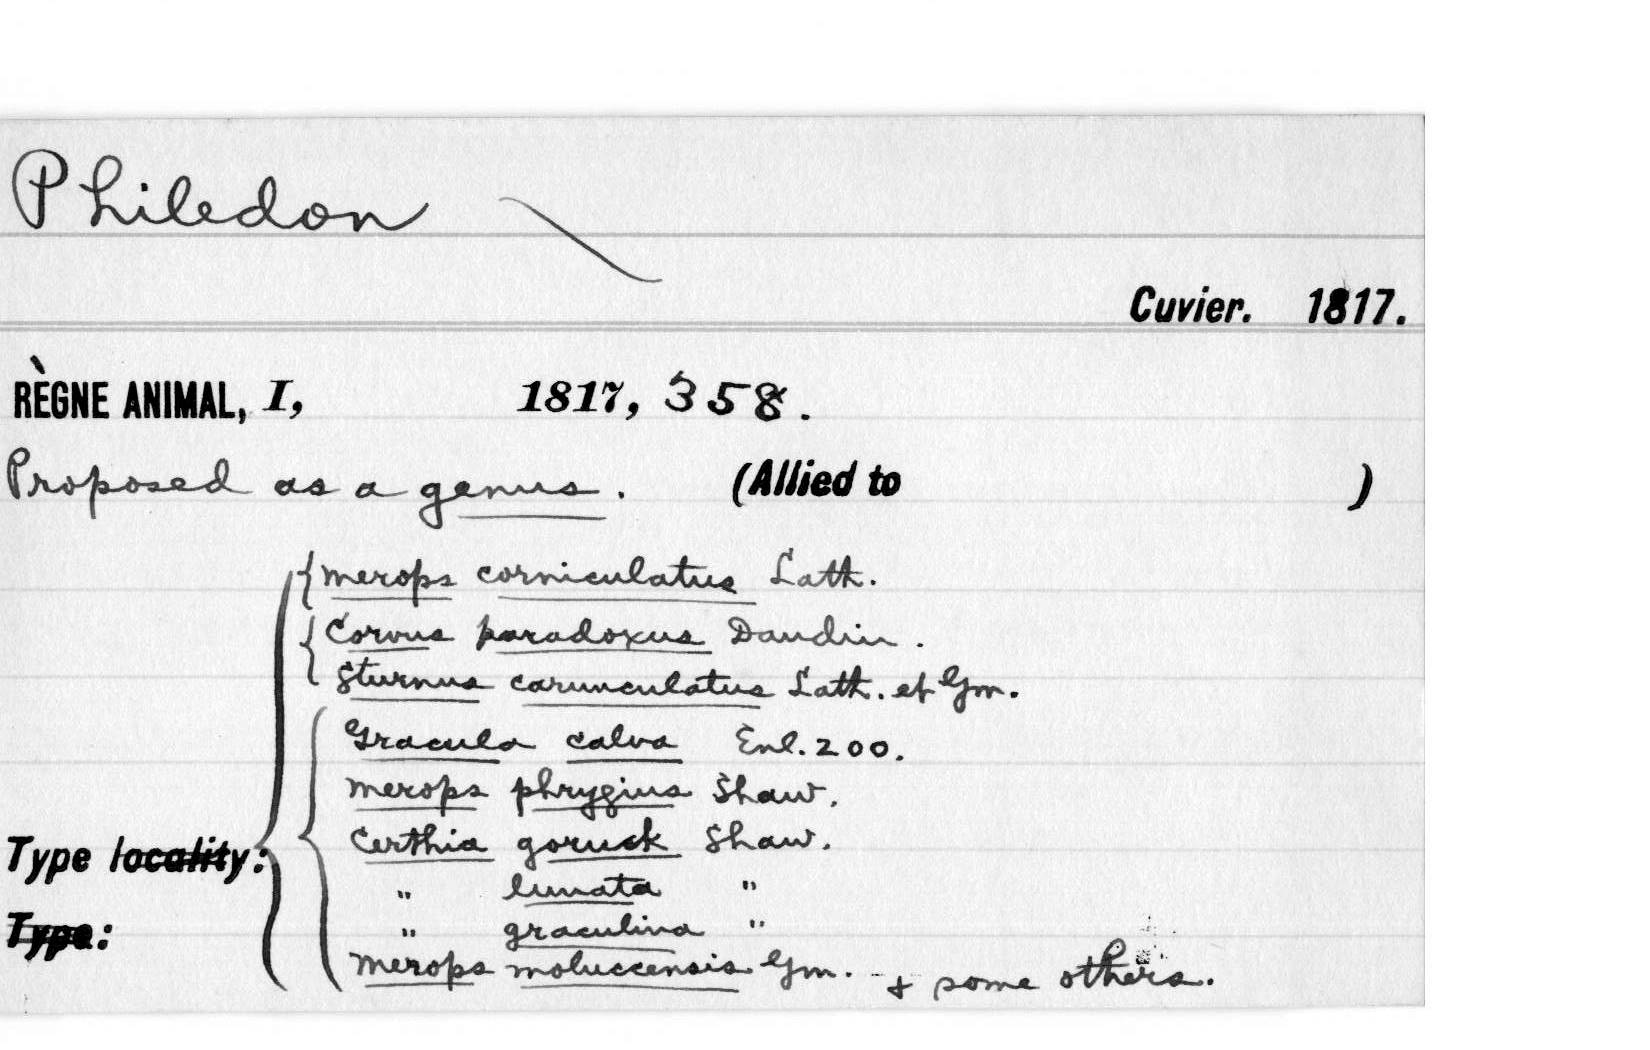 Philedon
Cuvier. 1817.
RÈGNE ANIMAL, I, 1817, 358.
Proposed as a genus. (Allied to )
Merops corniculatus Lath.
Corvus paradoxus Daudin.
Sturnus carunculatus Lath. et Gm.
Gracula calva Enl. 200.
Merops phrygius Shaw.
Certhia goruck Shaw.
Type locality:
" lunata "
Type:
" graculina "
Merops moluccensis Gm. & some others.